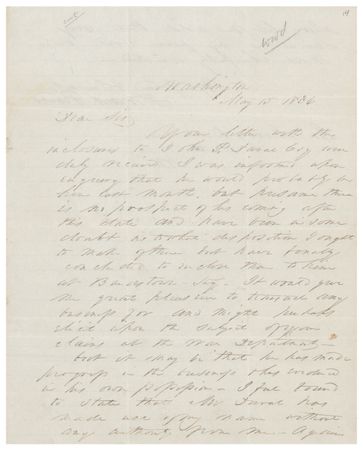 Washington
May 15 1836
Dear Sir
Your letter with the
inclosures to John P. Duval Esq were
duly received I was informed upon
enquiry that he would probably be
here last month, but presume there
is no prospect of his coming after
this date and have been in some
doubt as to what disposition I ought
to make of them but have finally
concluded to inclose them to him
at It would give
me great pleasure to transact any
business for and might perhaps
upon the subject of your
claims at the War Department—
but it may be that he has made
progress in the business & has evidence
in his own possession— I feel bound
to state that Mr Duval has
made use of my name without
any authority from me— Again